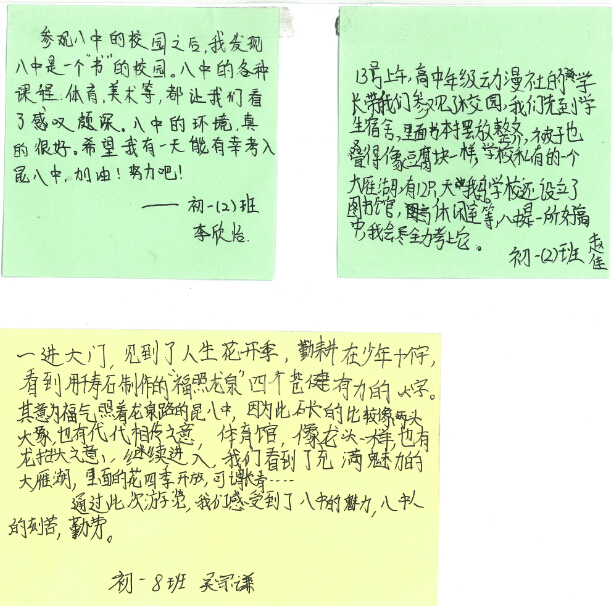 参观八中的校园之后,我发现
八中是一个“书”的校园。八中的各种
课程、体育、美术等,都让我们看
了感叹颇深。八中的环境,真
的很好。希望我有一天能有幸考入
昆八中,加油!努力吧!
——初一(2)班
李欣怡
13号上午,高中年级动漫社的学
长带我们参观了本校园,我们先到学
生宿舍,里面书本摆放整齐,被子也
叠得像豆腐块一样,学校私有的一个
大雁湖,有12只大雁,学校还设立了
图书馆,休闲室等,八中是一所好高
中,我会尽全力考上它。
初一(2)班 赵佳
一进大门,见到了人生花开季,勤耕在少年十个字,
看到用寿石制作的“福照龙泉”四个苍健有力的大字。
其意为福气照着龙泉路的昆八中,因为此石长的比较像两头
大象,也有代代相传之意,体育馆,像龙头一样,也有
龙抬头之意、继续进入,我们看到了充满魅力的
大雁湖,里面的花四季开放,可谓长春……
通过此次游学,我们感受到了八中的魅力,八中人
的刻苦,勤劳。
初一8班 吴宗谦